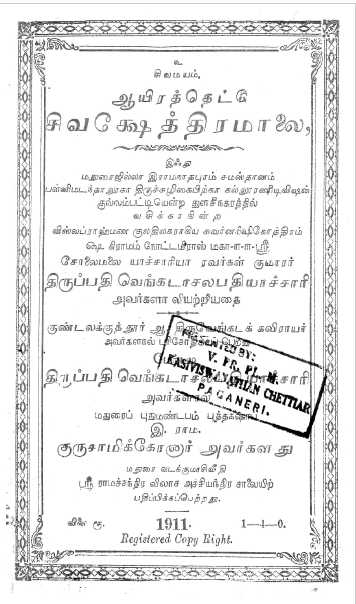 உ
சிவமயம்,
ஆயிரத்தெட்டு
சிவக்ஷேத்திரமாலை,
இஃது
மதுரைஜில்லா இராமநாதபுரம் சமஸ்தானம்
பள்ளிமடந்தாலூகா திருச்சுழிகைபிற்கா கல்லூரணிடிவிஷன்
குல்லம்பட்டியென்ற துளசீநகரத்தில்
வசிக்காநின்ற
விஸ்வப்ராஹ்மண குலதிலகராகிய சுவர்னரிஷிகோத்திரம்
ஷை கிராமம் நோட்டமீராஸ் மகா-ள-ள-ஸ்ரீ
சோலைமலை யாச்சாரியா ரவர்கள் குமாரர்
திருப்பதி வெங்கடாசலபதியாச்சாரி
அவர்களா லியற்றியதை
குண்டலக்குத்தூர் ஆ. திருவேங்கடக் கவிராயர்
அவர்களால் பரிசோதிப்பித்து
திருப்பதி வெங்கடாசல
அவர்களால்
மதுரைப் புதுமண்டபம் புத்தகஷாப்
இ. ராம.
குருசாமிக்கோனார் அவர்களது
மதுரை வடக்குமாசிவீதி
ஸ்ரீ ராமச்சந்திர விலாச அச்சியந்திர சாலையிற்
பதிப்பிக்கப்பெற்றது.
விலை ரூ. 1911. 1—4—0.
Registered Copy Right.
PRESENTED BY:
V. PR. PL. M.
KASIVISWANATHAN CHETTIAR
PAGANERI.